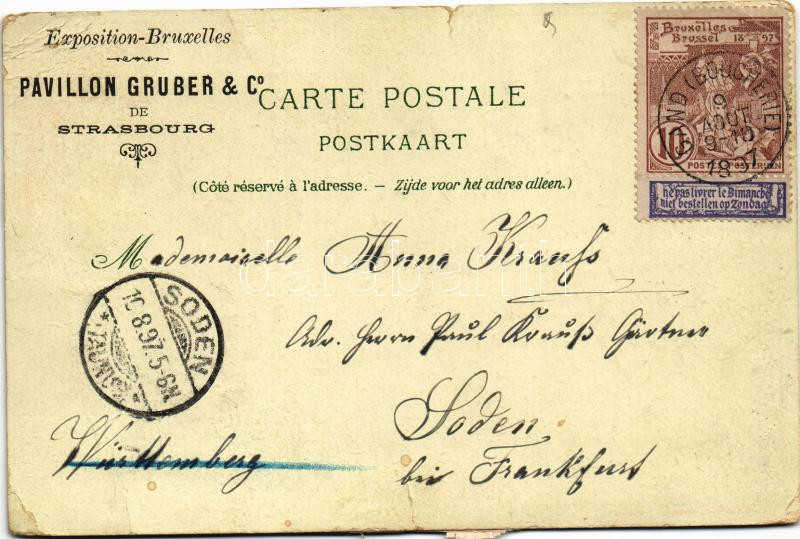 Exposition-Bruxelles
PAVILLON GRUBER & Cº
DE
STRASBOURG
CARTE POSTALE
POSTKAART
(Côté réservé à l'adresse. – Zijde voor het adres alleen.)
Bruxelles 18 97
Brussel
10
POSTERIJEN
ne pas livrer le Dimanche
niet bestellen op Zondag
GAND (BOUCHERIE)
9
AOUT
9-10
1897
Mademoiselle Anna Krauss
Adr. Herrn Paul Krauß Gärtner
Soden
bei Frankfurt
Württemberg
SODEN
10 8 97. 5-6N
*(TAUNUS)*
darabanth